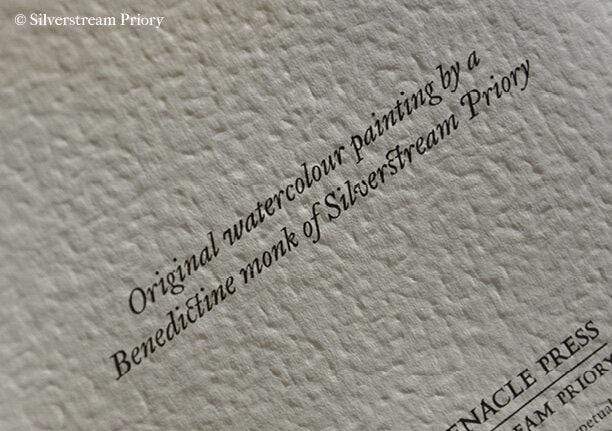 © Silverstream Priory
Original watercolour painting by a
Benedictine monk of Silverstream Priory
ENACLE PRESS
EAM PRIORY
rpetual